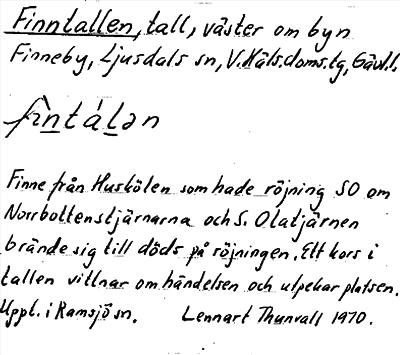 Finntallen, tall, väster om byn
Finneby, Ljusdals sn, V. Häls. doms. tg, Gävl. l.
fìn̲tál̲ən
Finne från Huskölen som hade röjning SO om
Norrbottenstjärnarna och S. Olatjärnen
brände sig till döds på röjningen. Ett kors i
tallen vittnar om händelsen och utpekar platsen.
Uppt. i Ramsjö sn. Lennart Thunvall 1970.